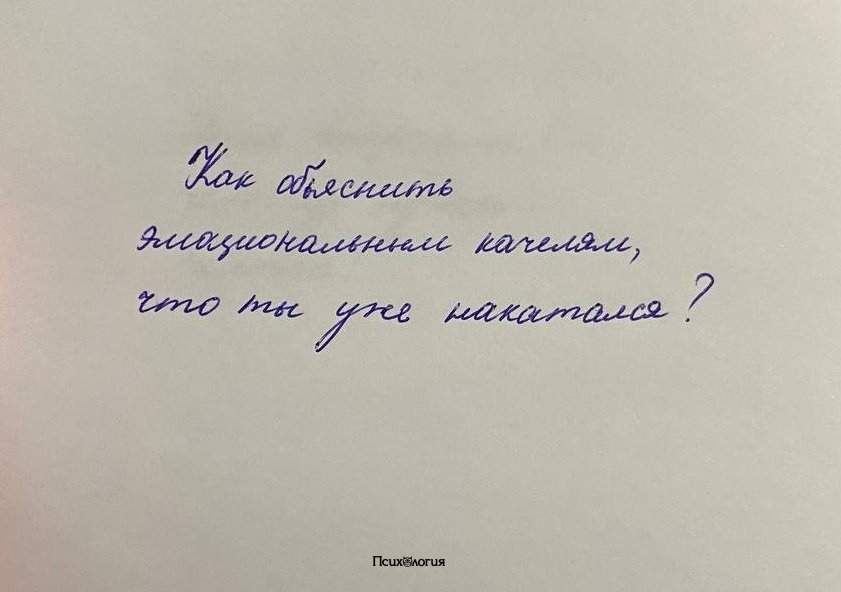 Как обьяснить
эмациональным качелям,
что ты уже накатался?
Психология